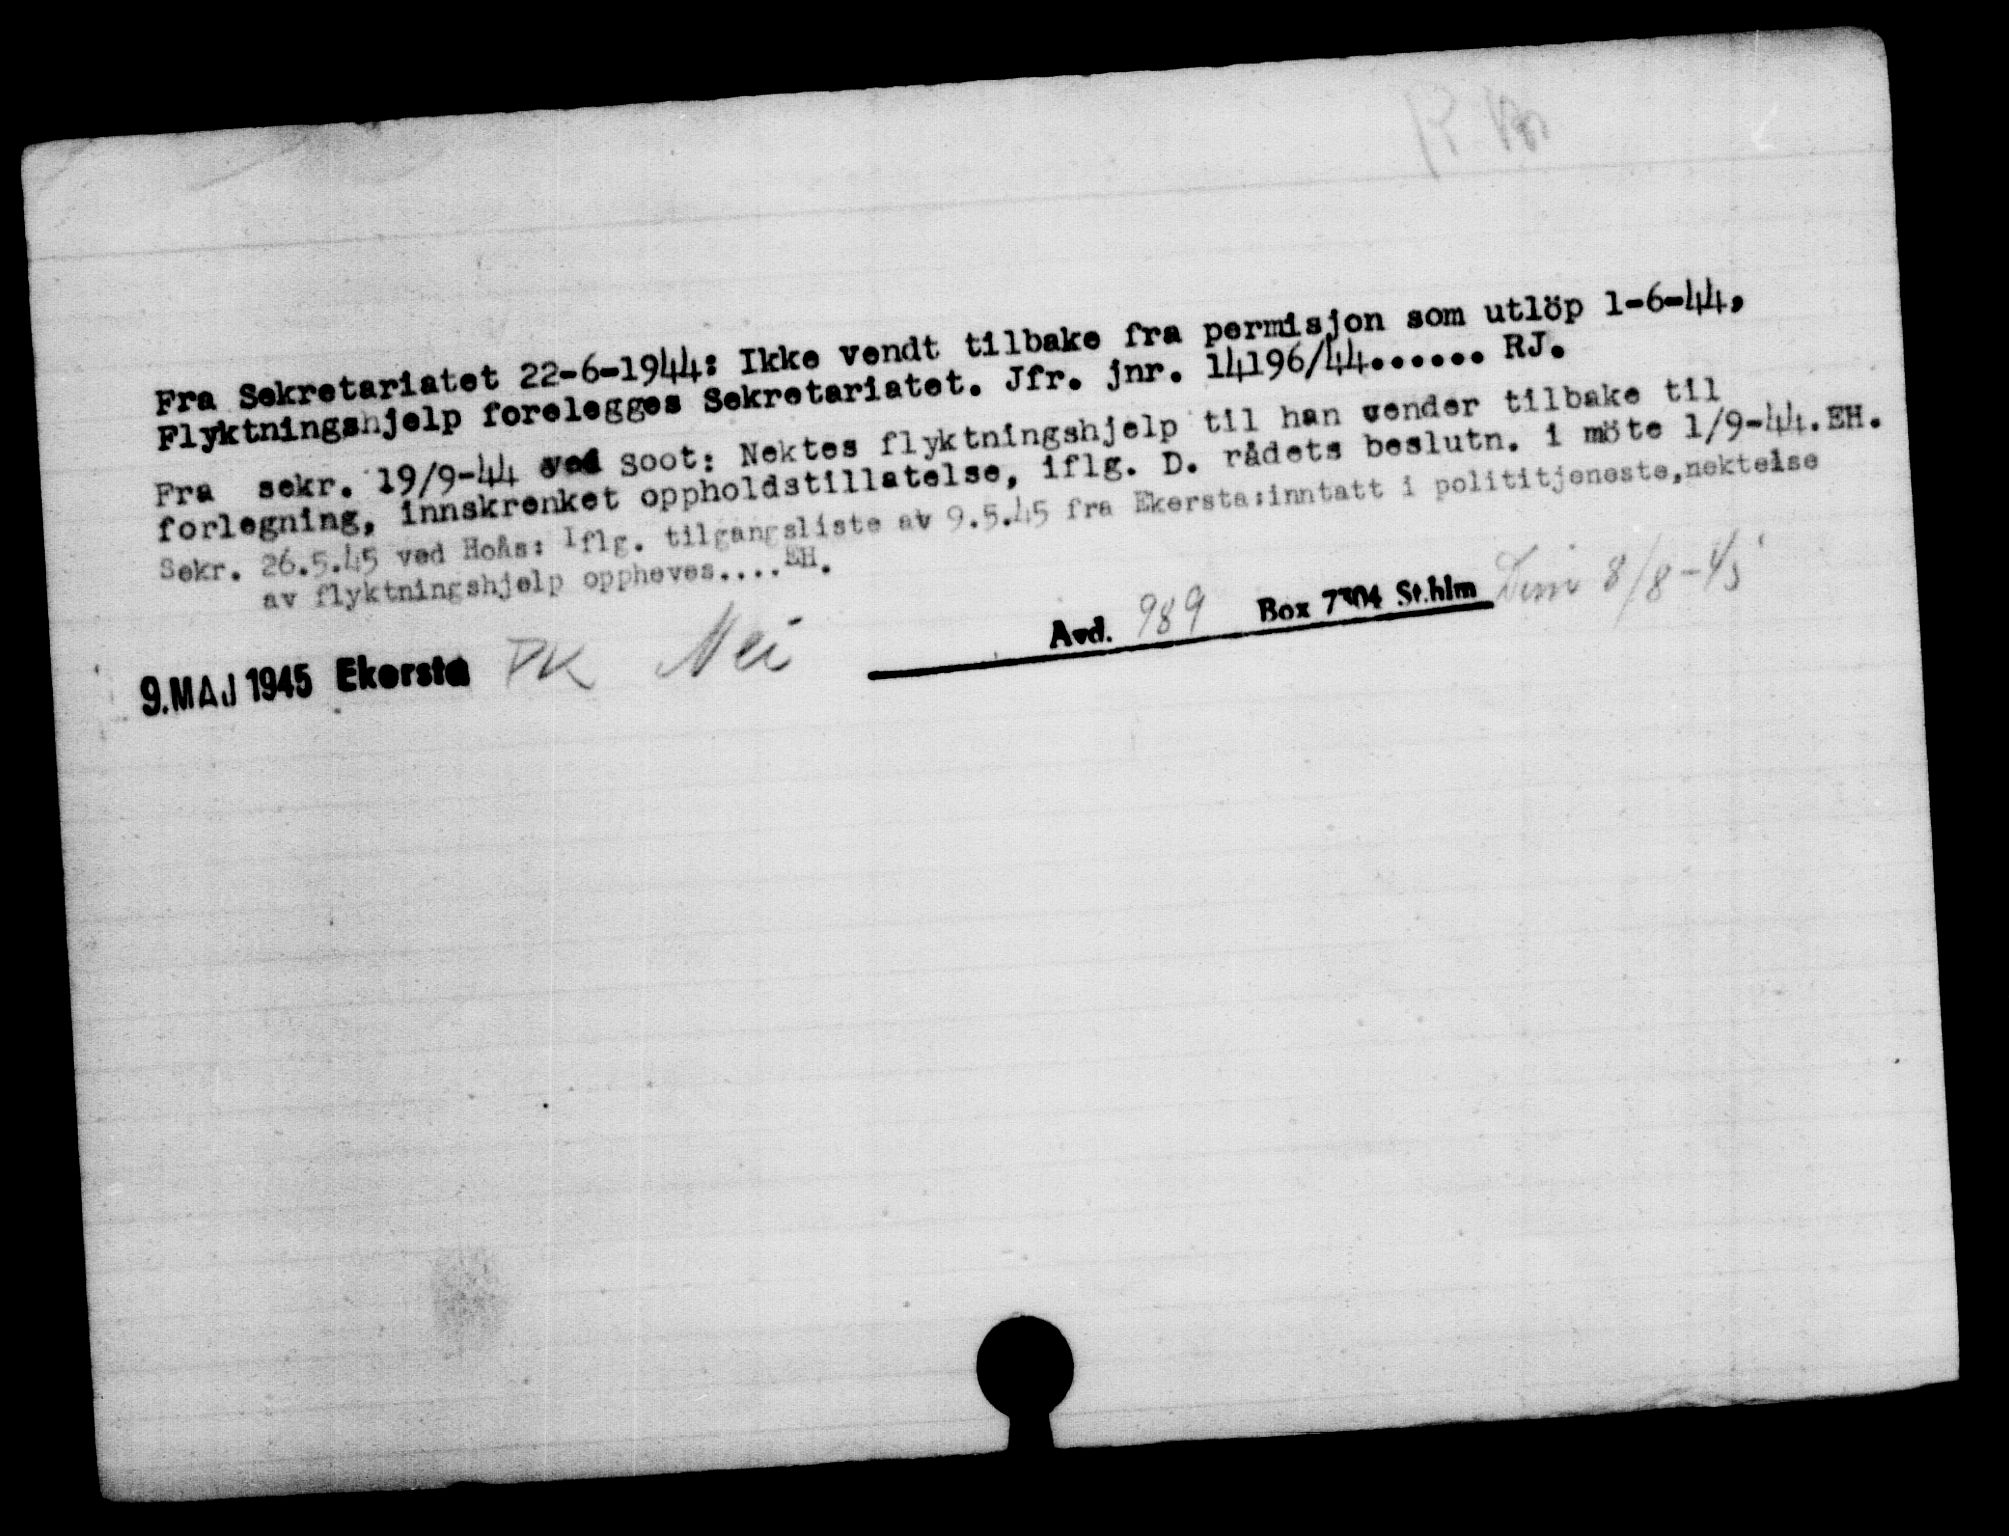 Fra Sekretariatet 22-6-1944: Ikke vendt tilbake fra permisjon som utlöp 1-6-44,
Flyktningshjelp forelegges Sekretariatet. Jfr. jnr. 14196/44...... RJ.
Fra sekr. 19/9-44 ved Soot: Nektes flyktningshjelp til han vender tilbake til
forlegning, innskrenket oppholdstillatelse, iflg. D. rådets beslutn. i möte 1/9-44.EH.
Sekr. 26.5.45 ved Hoås: Iflg. tilgangsliste av 9.5.45 fra Ekersta:inntatt i polititjeneste,nektelse
av flyktningshjelp oppheves....EH.
Avd. 989 Box 7304 St.hlm 8/8-45
9.MAJ 1945 Ekersta PK Nei